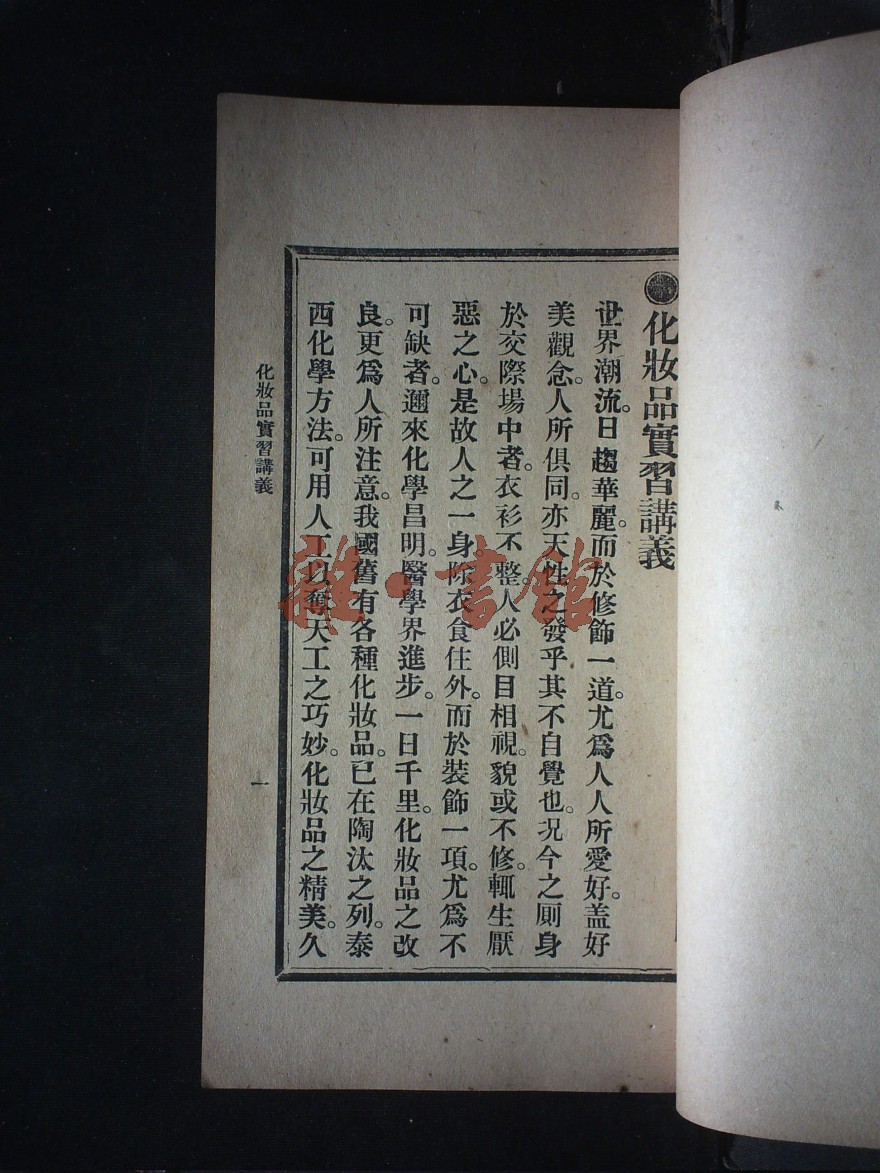 化妝品實習講義
世界潮流。日趨華麗。而於修飾一道。尤爲人人所愛好。盖好
美觀念。人所俱同。亦天性之發乎其不自覺也。況今之厠身
於交際場中者。衣衫不整。人必側目相視。貌或不修。輒生厭
惡之心。是故人之一身。除衣食住外。而於裝飾一項。尤爲不
可缺者。邇來化學昌明。醫學界進步。一日千里。化妝品之改
良。更爲人所注意。我國舊有各種化妝品。已在陶汰之列。泰
西化學方法。可用人工以奪天工之巧妙。化妝品之精美。久
化妝品實習講義
一
雜·書館